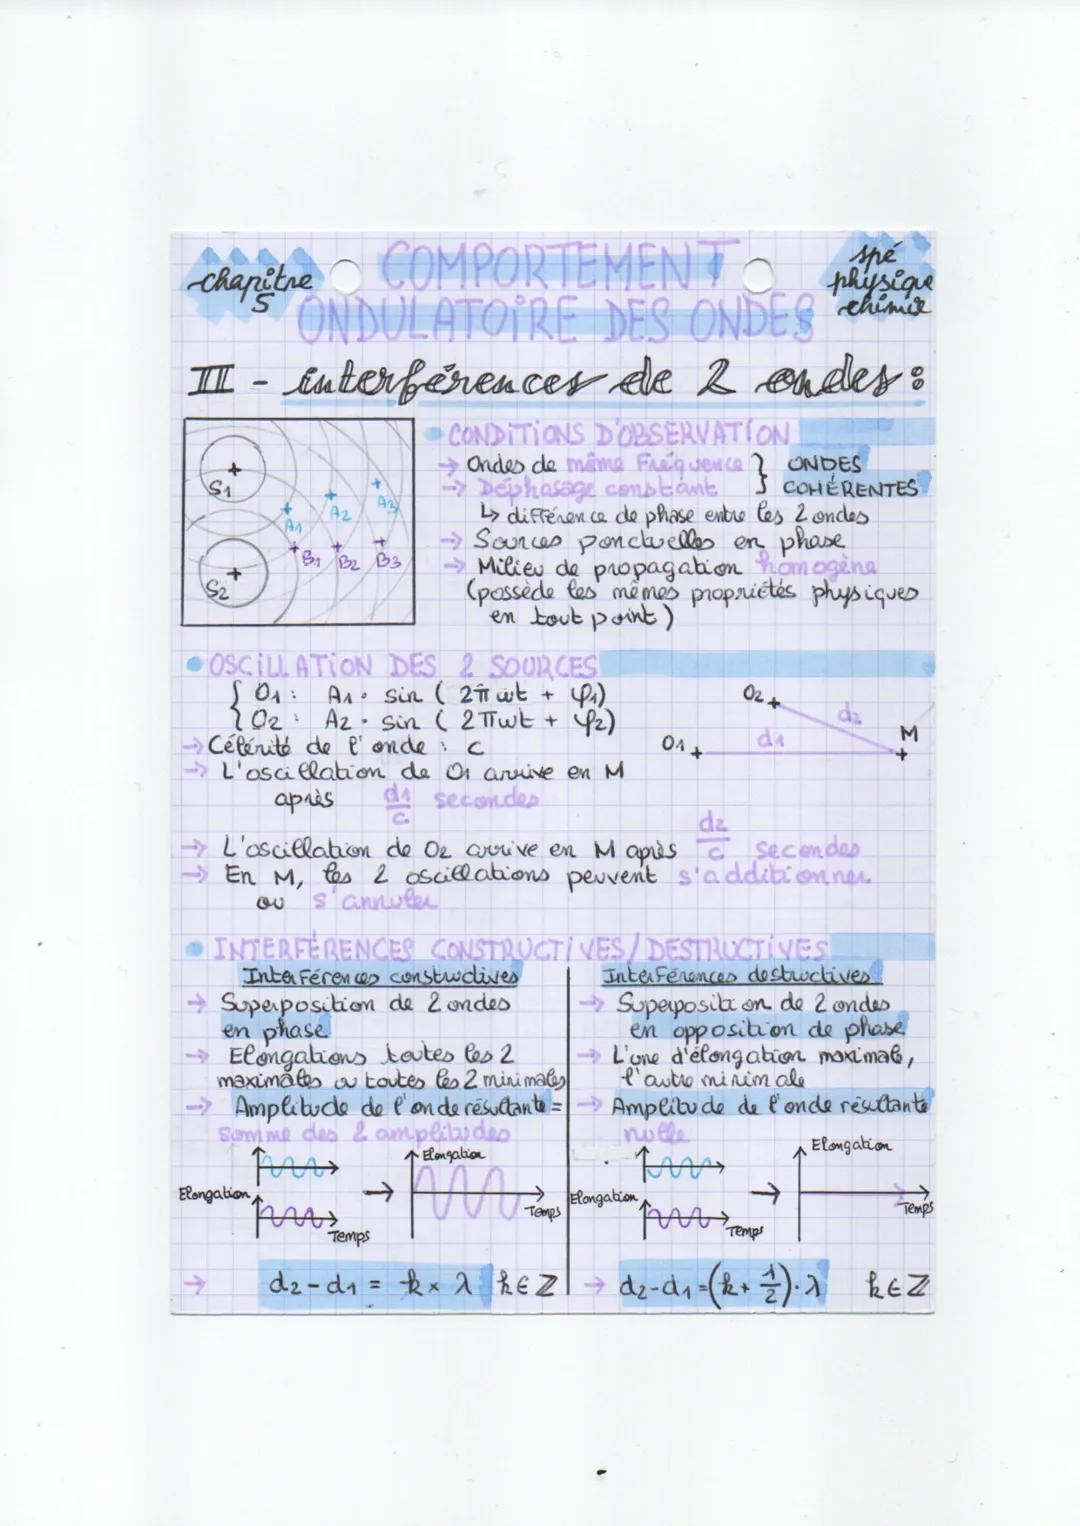 chapitre
5
COMPORTEMENT
ONDULATOIRE DES ONDES
spé
physique
chimie
III - interférences de 2 ondes :
S1
S2
A1
A2
A3
B1
B2
B3
• CONDITIONS D'OBSERVATION
→ Ondes de même fréquence } ONDES
→ Déphasage constant } COHÉRENTES
↳ différence de phase entre les 2 ondes
→ Sources ponctuelles en phase
→ Milieu de propagation homogène
(possède les mêmes propriétés physiques
en tout point)
• OSCILLATION DES 2 SOURCES
{ O1 : A1 · sin ( 2π wt + φ1)
{ O2 : A2 · sin ( 2πwt + φ2)
O2
d2
M
O1
d1
→ Célérité de l'onde : c
→ L'oscillation de O1 arrive en M
après d1/c secondes
→ L'oscillation de O2 arrive en M après d2/c secondes
→ En M, les 2 oscillations peuvent s'additionner
ou s'annuler
• INTERFÉRENCES CONSTRUCTIVES/DESTRUCTIVES
Interférences constructives
→ Superposition de 2 ondes
en phase
→ Elongations toutes les 2
maximales ou toutes les 2 minimales
→ Amplitude de l'onde résultante =
somme des 2 amplitudes
Elongation
Elongation
Temps
Temps
→ d2-d1 = k × λ k∈Z
Interférences destructives
→ Superposition de 2 ondes
en opposition de phase
→ L'une d'élongation maximale,
l'autre minimale
→ Amplitude de l'onde résultante
nulle
Elongation
Elongation
Temps
Temps
→ d2-d1=(k+ 1/2)·λ k∈Z